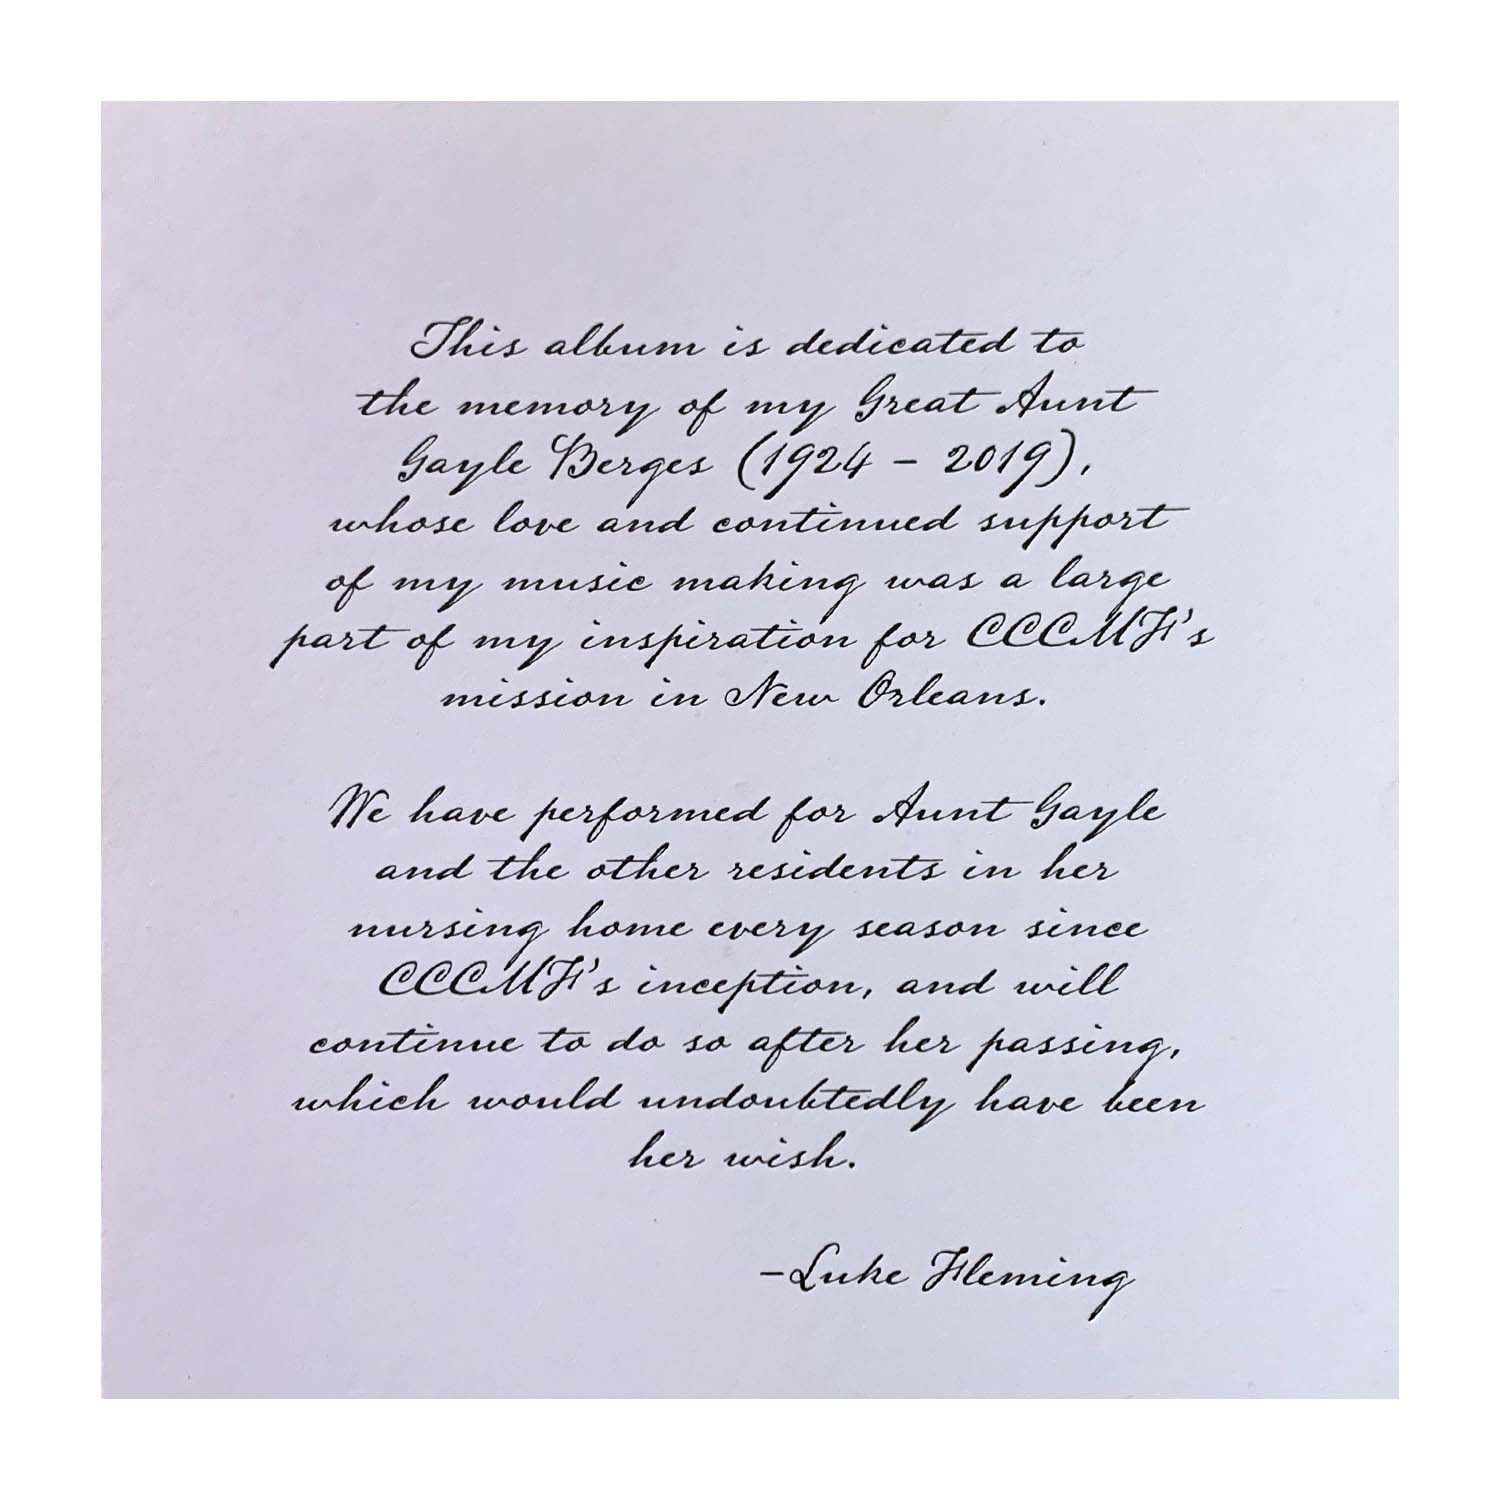 This album is dedicated to
the memory of my Great Aunt
Gayle Berges (1924 – 2019),
whose love and continued support
of my music making was a large
part of my inspiration for CCCMF's
mission in New Orleans.
We have performed for Aunt Gayle
and the other residents in her
nursing home every season since
CCCMF's inception, and will
continue to do so after her passing,
which would undoubtedly have been
her wish.
–Luke Fleming